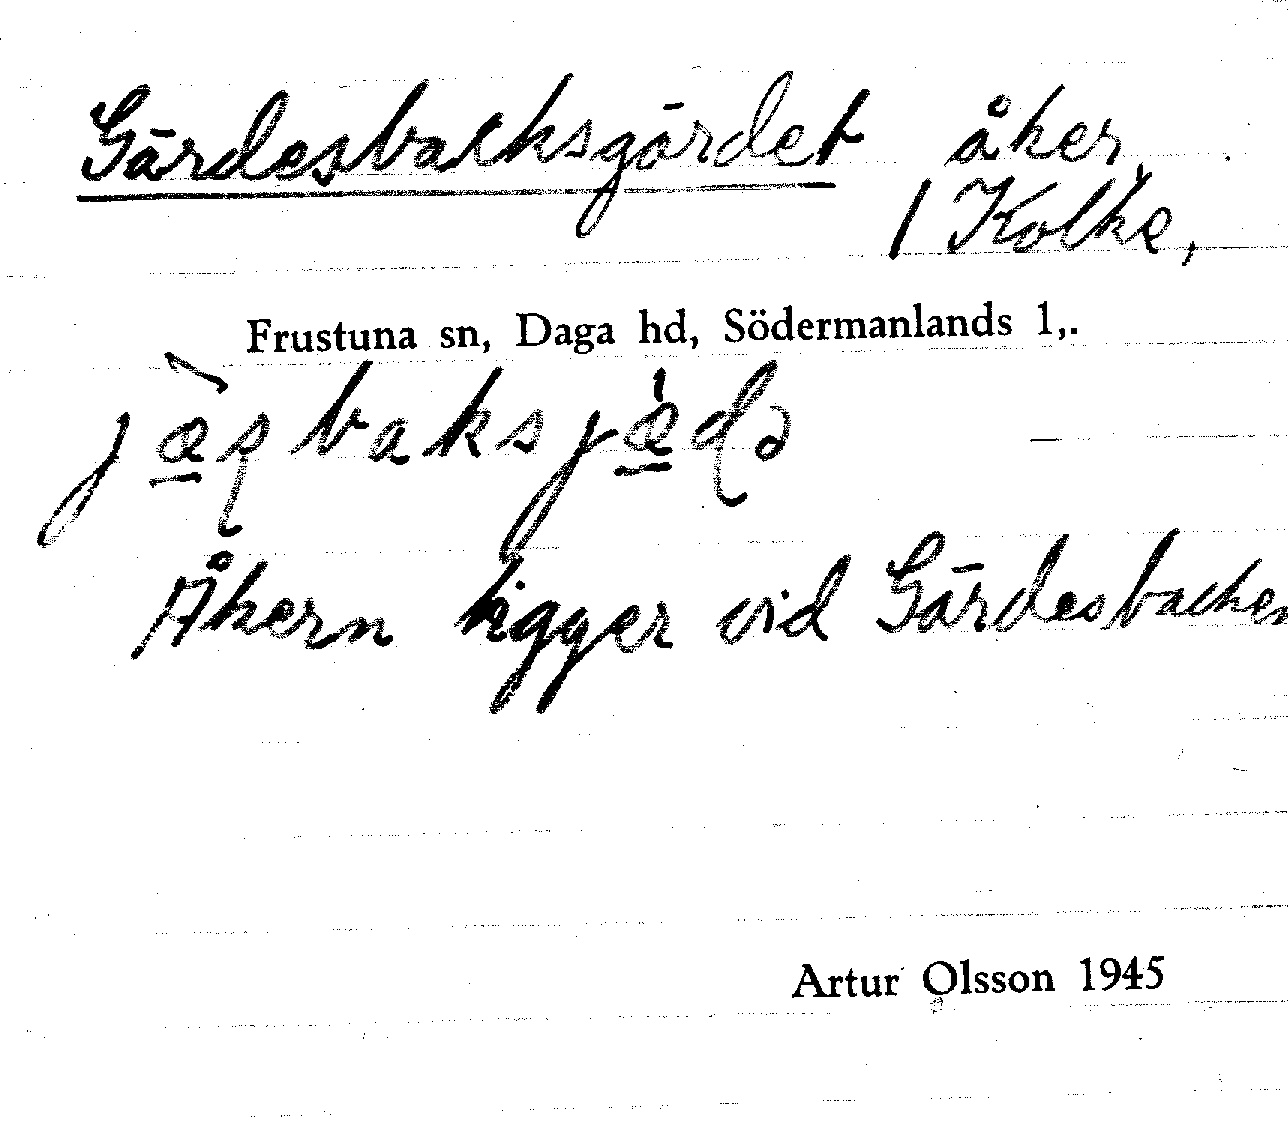 Gärdesbacksgärdet åker,
1 Kolke,
Frustuna sn, Daga hd, Södermanlands l,.
j̀æ̱ʂbaksjæ̱̍ɖə
Åkern ligger vid Gärdesbacken
Artur Olsson 1945